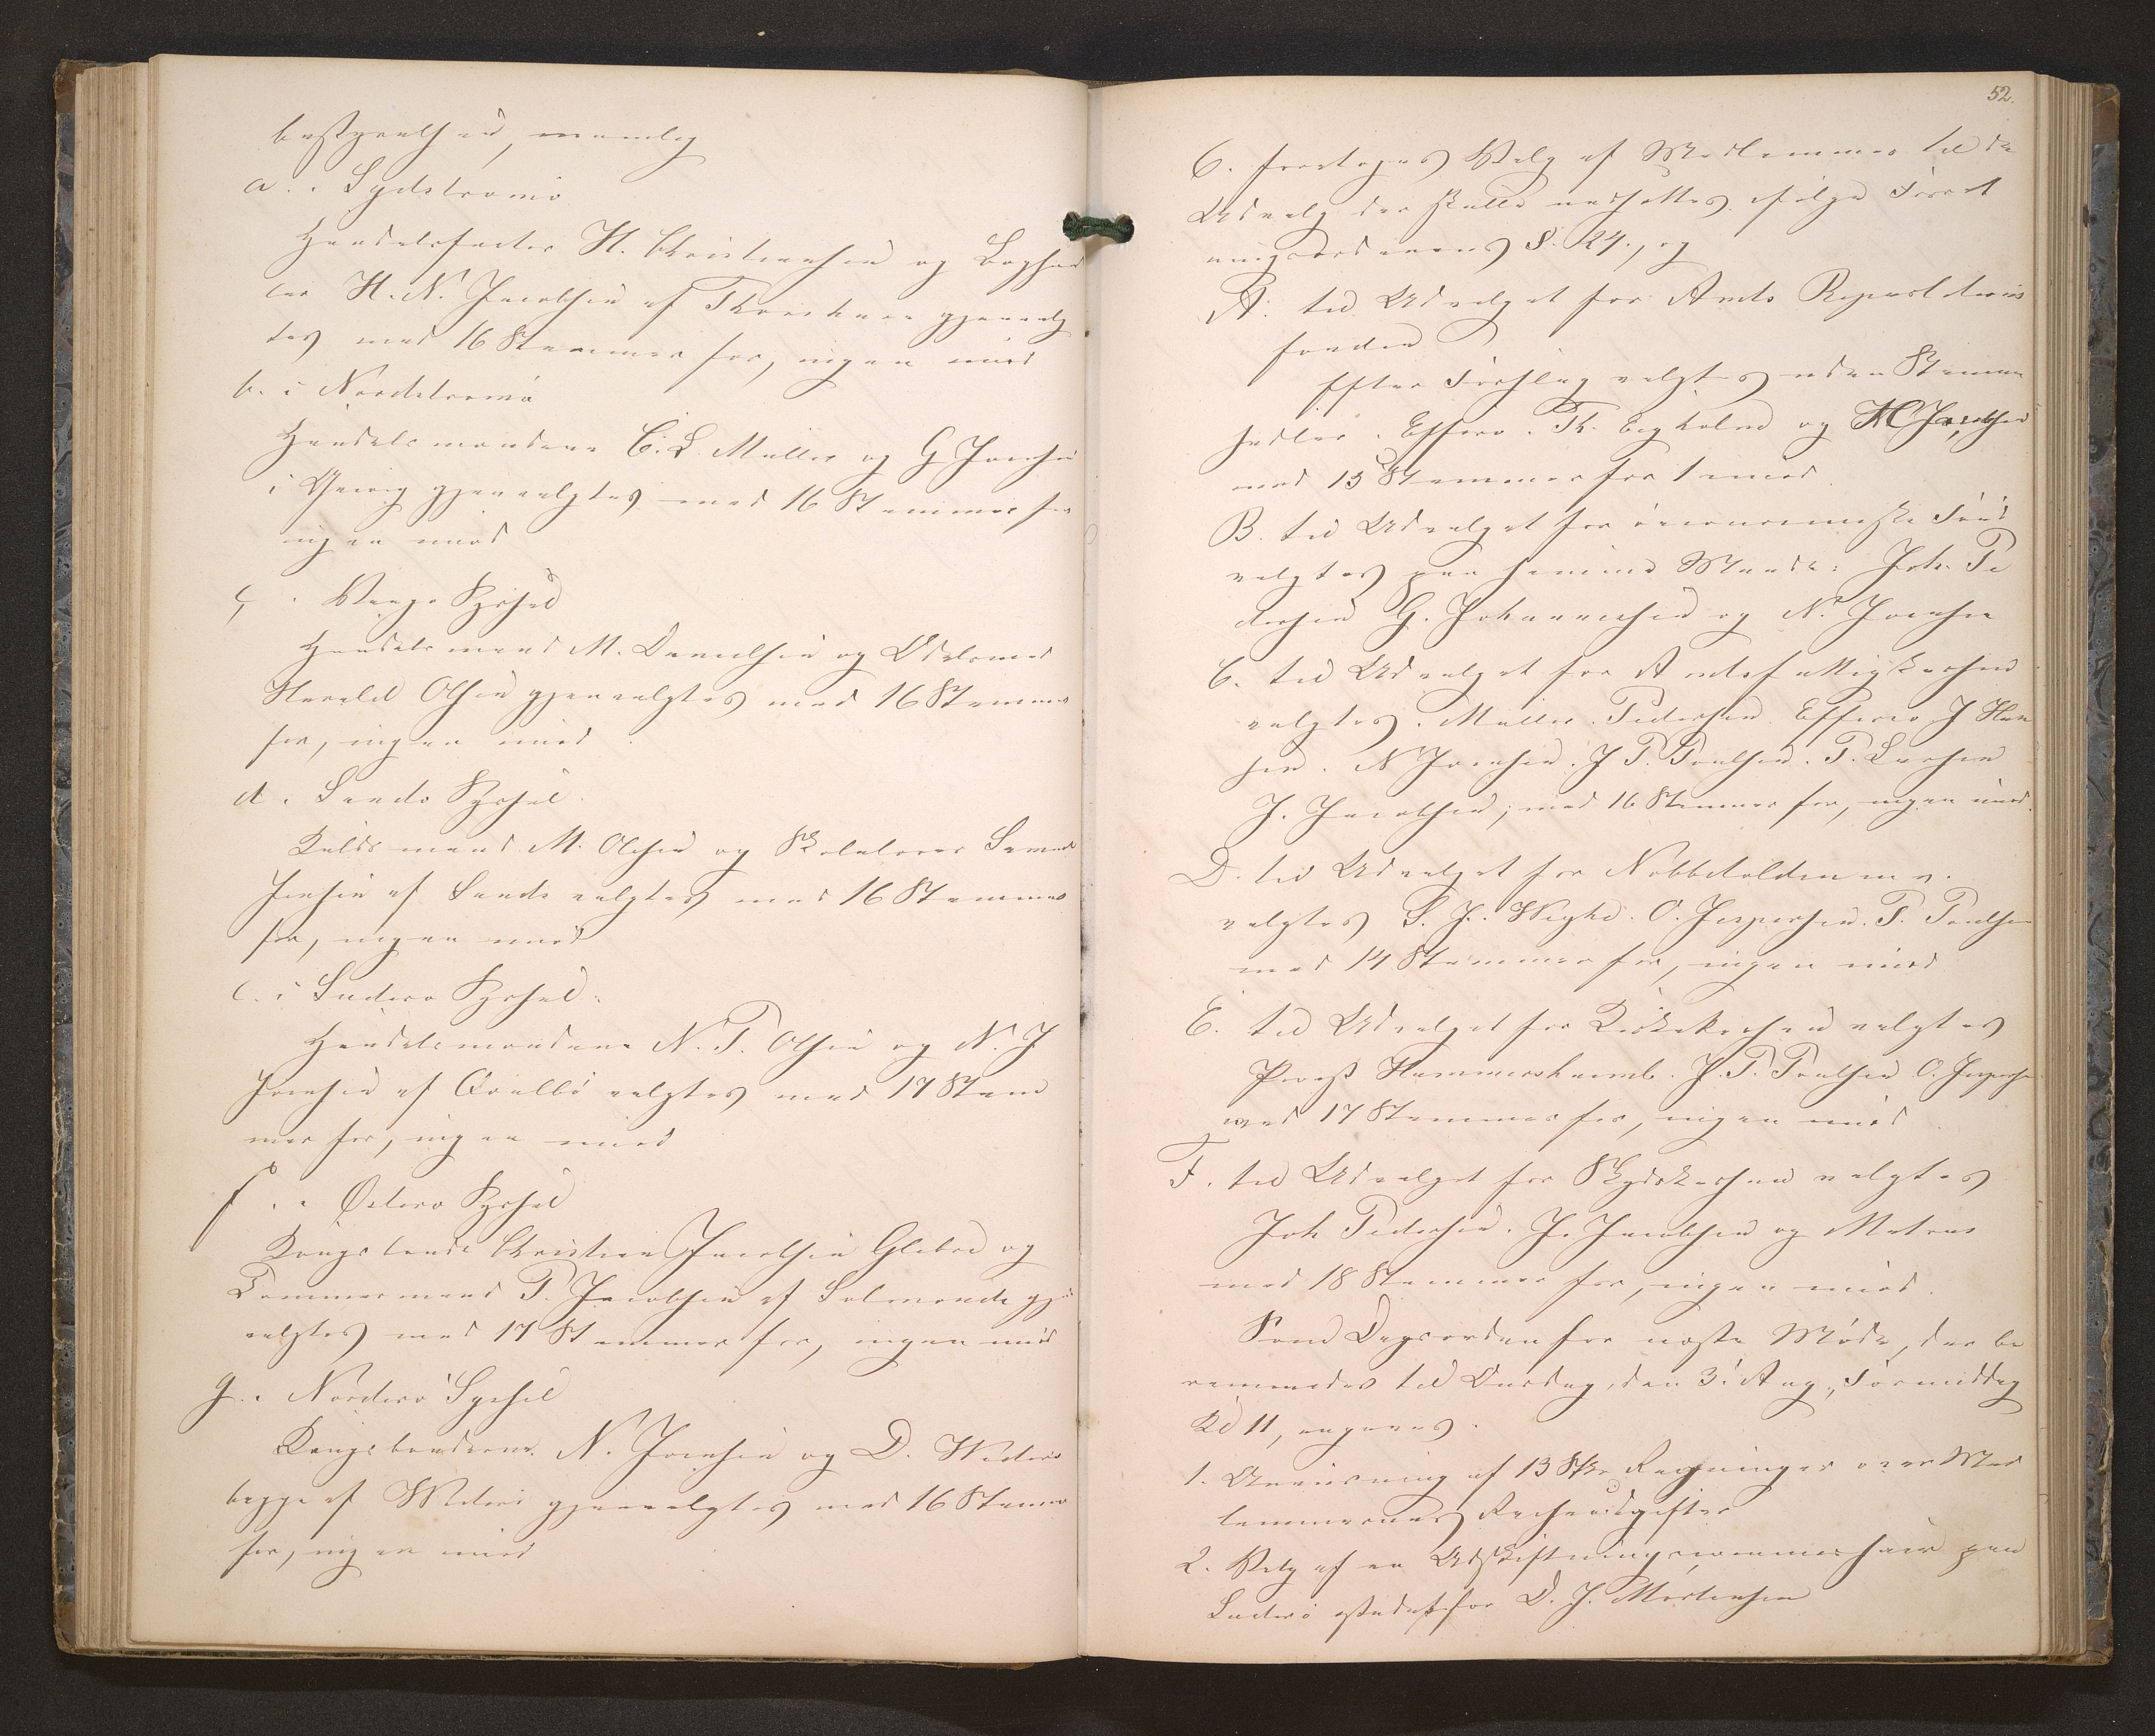 bestyrelsen, nemlig
a. i Sydstrømø
Handelsfactor H. Christiansen og Boghand
ler H. N. Jacobsen af Thorshavn gjenvalg
tes med 16 Stemmer for, ingen imod
b. i Nordstrømø
Handelsmændene C. L. Müller og G Joensen
i Qvivig gjenvalgtes med 16 Stemmer for
ingen imod
c, i Vaagø Syssel
Handelsmand M. Danielsen og Odelsmand
Harald Olsen gjenvalgtes med 16 Stemmer
for, ingen imod.
d. i Sandø Syssel.
Kuldsmand M. Olsen og Skolelærer Samuel
Jensen af Sand valgtes med 16 Stemmer
for, ingen imod
e. i Suderø Syssel.
Handelsmændene N. P. Olsen og N. J
Joensen af Qvalbø valgtes med 17 Stem
mer for, ingen imod
f. i Østerø Syssel
Kongsbonde Christian Jacobsen Glibre og
Tømmermand P. Jacobsen af Solmunde gjen
valgtes med 17 Stemmer for, ingen imod
g. i Norderø Syssel
Kongsbønderne N. Joensen og D. Viderø
begge af Viderø gjenvalgtes med 16 Stemmer
for, ingen imod
52.
6. foretages Valg af Medlemmer til de
Udvalg der skulle nedsættes ifølge Forret
ningsordenens §. 24., og
A. til Udvalget for Amts Repartitions
fonden
Efter Forslag valgtes uden Stemme
sedler. Effersø. Th. Egholm og HC Jacobsen
med 15 Stemmer for 1 imod.
B. til Udvalget for øconomiske Fond
valgtes paa samme Maade: Joh. Pe
dersen G. Johannesen og N. Joensen
C. til Udvalget for Amtsfattigkassen
valgtes. Müller. Pedersen. Effersø. J Han
sen. N Joensen. J P. Poulsen. P. Larsen
J. Jacobsen, med 16 Stemmer for, ingen imod.
D. til Udvalget for Næbbetolden m. v.
valgtes S. J. Weyhe. O. Jespersen. P. Poulsen
med 14 Stemmer for, ingen imod
E. til Udvalget for Kirkekassen valgtes
Provst Hammershaimb. J. P. Poulsen O. Jespersen
med 17 Stemmer for, ingen imod
F. til Udvalget for Skydskassen valgtes
Joh Pedersen. J. Jacobsen og Matras
med 18 Stemmer for, ingen imod.
Som Dagsorden for næste Møde, der be
rammedes til Onsdag, den 3. Aug., Formiddag
Kl 11, angaves.
1. Anvisning af 13 Stkr Regninger over Med
lemmernes Reiseudgifter
2. Valg af en Udskiftningscommissair paa
Suderø istedetfor D. J. Mortensen